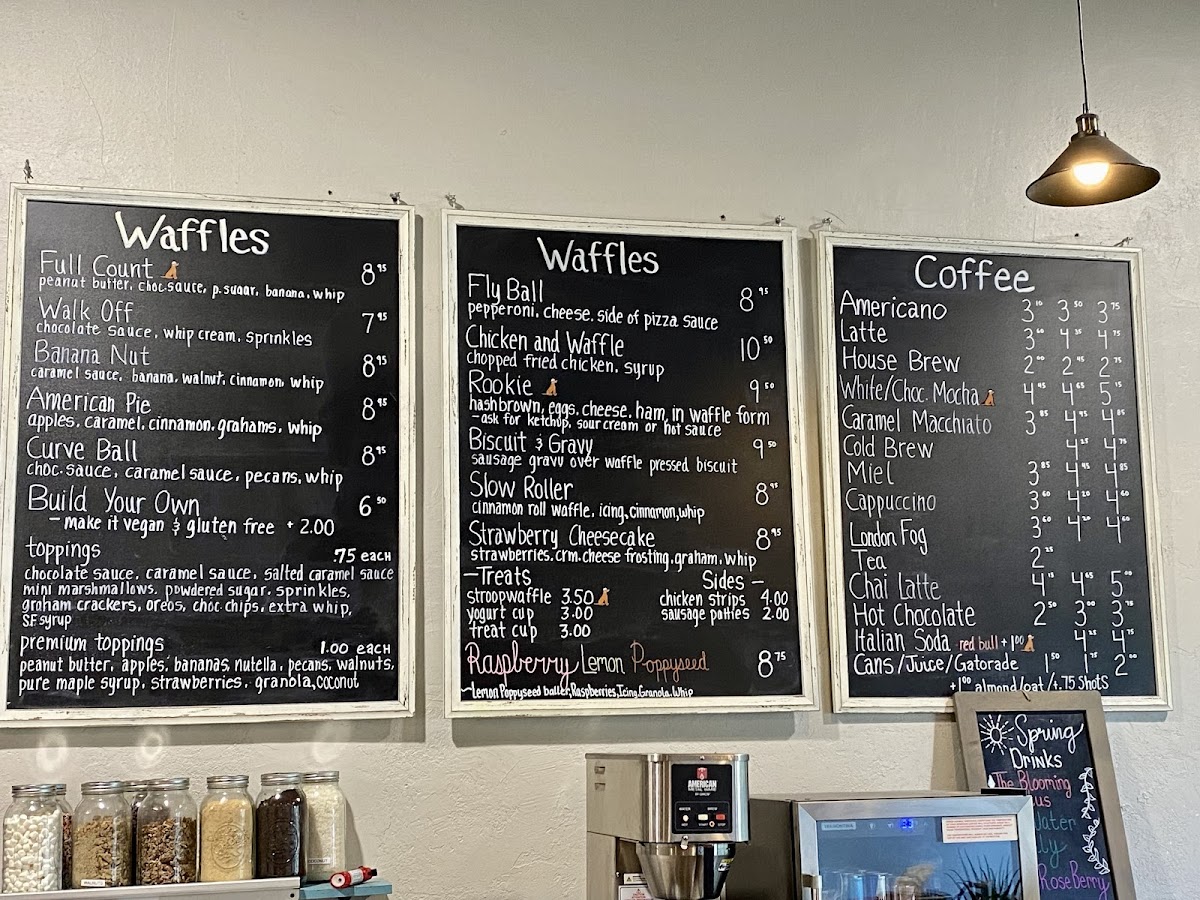 Waffles
Full Count 8⁹⁵
peanut butter, choc.sauce, p.sugar, banana, whip
Walk Off 7⁹⁵
chocolate sauce, whip cream, sprinkles
Banana Nut 8⁹⁵
caramel sauce, banana, walnut, cinnamon, whip
American Pie 8⁹⁵
apples, caramel, cinnamon, grahams, whip
Curve Ball 8⁹⁵
choc.sauce, caramel sauce, pecans, whip
Build Your Own 6⁵⁰
- make it vegan & gluten free + 2.00
toppings .75 each
chocolate sauce, caramel sauce, salted caramel sauce
mini marshmallows, powdered sugar, sprinkles,
graham crackers, oreos, choc chips, extra whip,
SF syrup
premium toppings 1.00 each
peanut butter, apples, bananas, nutella, pecans, walnuts,
pure maple syrup, strawberries, granola, coconut
Waffles
Fly Ball 8⁹⁵
pepperoni, cheese, side of pizza sauce
Chicken and Waffle 10⁵⁰
chopped fried chicken, syrup
Rookie 9⁵⁰
hashbrown, eggs, cheese, ham, in waffle form
- ask for ketchup, sour cream or hot sauce
Biscuit & Gravy 9⁵⁰
sausage gravy over waffle pressed biscuit
Slow Roller 8⁹⁵
cinnamon roll waffle, icing, cinnamon, whip
Strawberry Cheesecake 8⁹⁵
strawberries, crm.cheese frosting, graham, whip
- Treats Sides -
stroopwaffle 3.50 chicken strips 4.00
yogurt cup 3.00 sausage patties 2.00
treat cup 3.00
Raspberry Lemon Poppyseed 8⁷⁵
~Lemon Poppyseed batter, Raspberries, Icing, Granola, Whip
Coffee
Americano 3¹⁰ 3⁵⁰ 3⁷⁵
Latte 3⁶⁰ 4³⁵ 4⁷⁵
House Brew 2⁰⁰ 2⁴⁵ 2⁷⁵
White/Choc. Mocha 4⁴⁵ 4⁶⁵ 5¹⁵
Caramel Macchiato 3⁸⁵ 4⁴⁵ 4⁸⁵
Cold Brew 4²⁵ 4⁷⁵
Miel 3⁸⁵ 4⁴⁵ 4⁸⁵
Cappuccino 3⁶⁰ 4²⁰ 4⁶⁰
London Fog 3⁶⁰ 4²⁰ 4⁶⁰
Tea 2²⁵
Chai Latte 4¹⁵ 4⁶⁵ 5⁰⁰
Hot Chocolate 2⁵⁰ 3⁰⁰ 3⁷⁵
Italian Soda red bull + 1⁰⁰ 4²⁵ 4⁷⁵
Cans/Juice/Gatorade 1⁵⁰ 1⁷⁵ 2⁰⁰
+1⁰⁰ almond/oat /+.75 Shots
Spring
Drinks
The Blooming
RoseBerry
AMERICAN